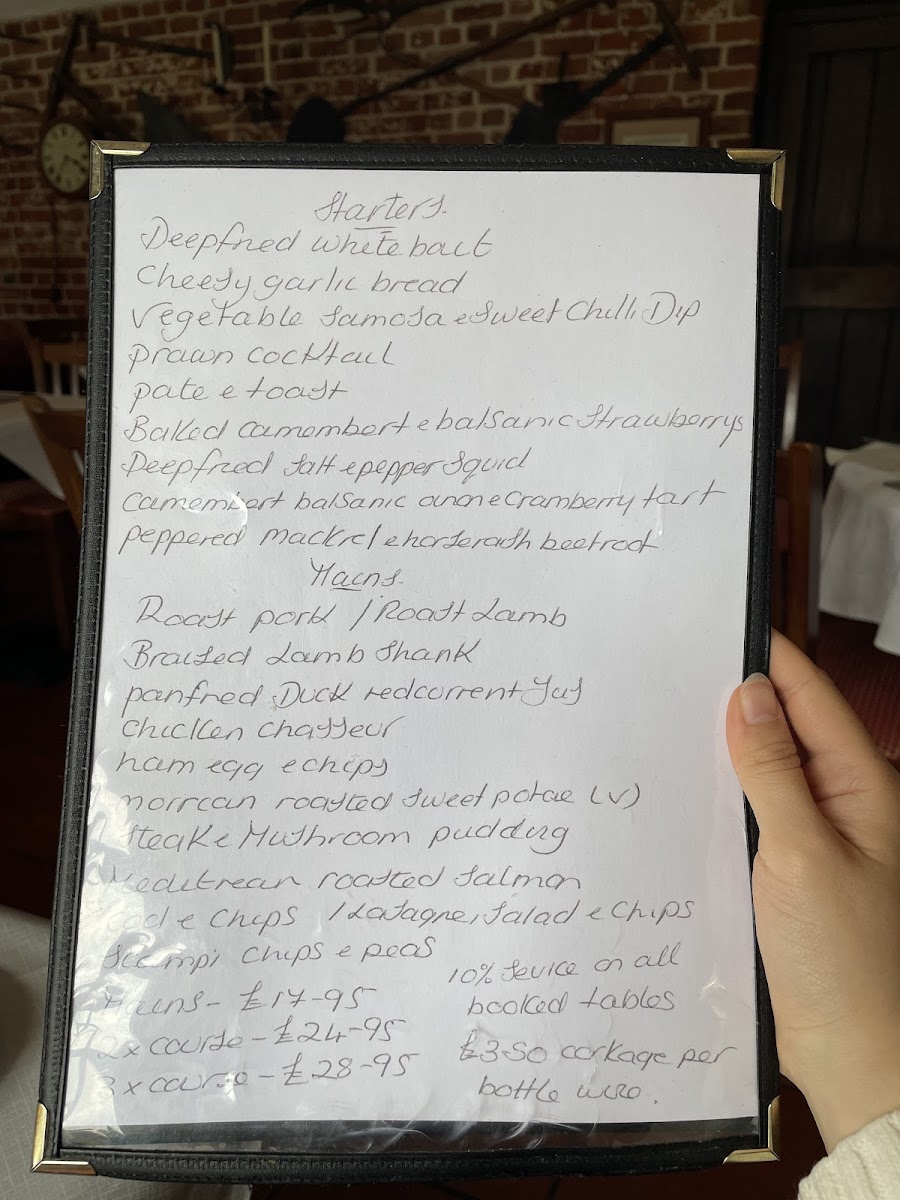 Starters.
Deepfried white bait
Cheesy garlic bread
Vegetable Samosa e Sweet Chilli Dip
prawn cocktail
pate e toast
Baked camembert e balsanic strawberrys
Deepfried salt e pepper squid
camembert balsanic e cramberry tart
peppered mackrel e horserash beetroot
Mains.
Roast pork / Roast Lamb
Braised Lamb Shank
panfried Duck redcorrent Jus
chicken chasseur
ham egg e chips
morrcan roasted sweet potae (v)
steak e Mushroom pudding
Medutrean roasted salmon
cod e chips / Lasagne, salad e chips
Scampi chips e peas
10% sevice on all
booked tables
Mains - £17-95
2 x course - £24-95
3 x course - £28-95
£3-50 corkage per
bottle wine.